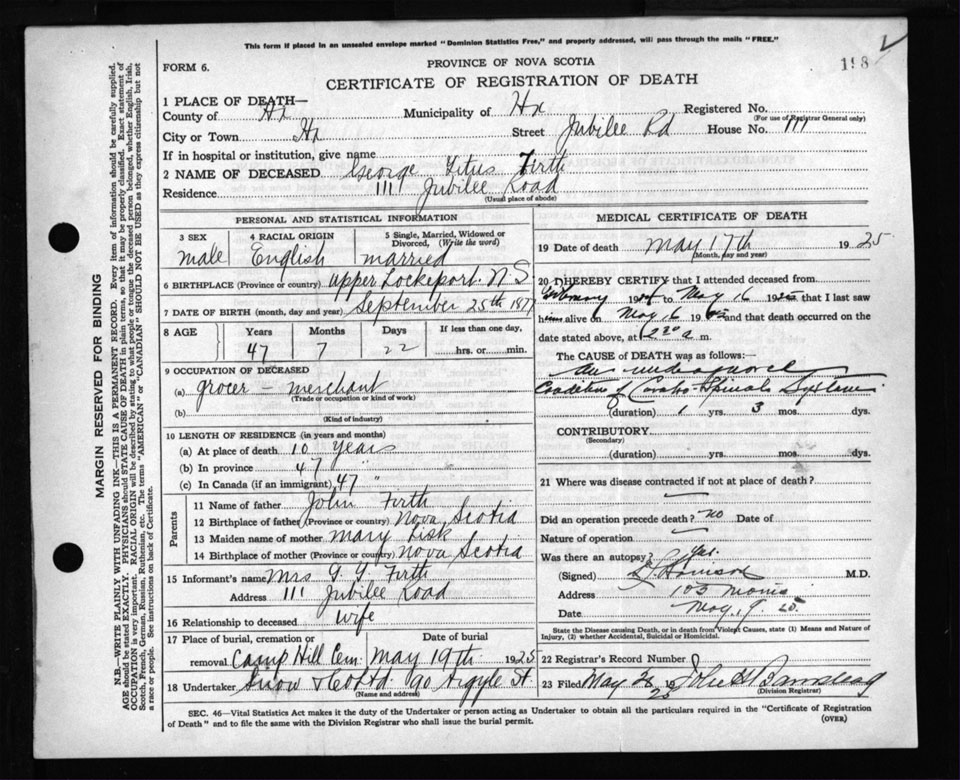 This form if placed in an unsealed envelope marked "Dominion Statistics Free," and properly addressed, will pass through the mails "FREE."
FORM 6.
PROVINCE OF NOVA SCOTIA
198
CERTIFICATE OF REGISTRATION OF DEATH
1 PLACE OF DEATH—
County of Hx Municipality of Hx Registered No.
(For use of Registrar General only)
City or Town Hx Street Jubilee Rd House No. 111
If in hospital or institution, give name
2 NAME OF DECEASED George Titus Firth
Residence 111 Jubilee Road
(Usual place of abode)
PERSONAL AND STATISTICAL INFORMATION
3 SEX 4 RACIAL ORIGIN 5 Single, Married, Widowed or Divorced, (Write the word)
male English married
6 BIRTHPLACE (Province or country) Upper Lockeport N.S
7 DATE OF BIRTH (month, day and year) September 25th 1877
8 AGE Years Months Days If less than one day,
47 7 22 hrs. or min.
9 OCCUPATION OF DECEASED
(a) grocer - merchant
(Trade or occupation or kind of work)
(b)
(Kind of industry)
10 LENGTH OF RESIDENCE (in years and months)
(a) At place of death 10 years
(b) In province 47 "
(c) In Canada (if an immigrant) 47 "
Parents
11 Name of father John Firth
12 Birthplace of father (Province or country) Nova Scotia
13 Maiden name of mother Mary Lisk
14 Birthplace of mother (Province or country) Nova Scotia
15 Informant's name Mrs G. T. Firth
Address 111 Jubilee Road
16 Relationship to deceased wife
17 Place of burial, cremation or removal Camp Hill Cem. Date of burial May 19th 1925
18 Undertaker Snow & Co Ltd 90 Argyle St.
(Name and address)
MEDICAL CERTIFICATE OF DEATH
19 Date of death May 17th 1925
(Month, day and year)
20 I HEREBY CERTIFY that I attended deceased from
192 to May 16 1925 that I last saw
him alive on May 16 and that death occurred on the
date stated above, at m.
The CAUSE of DEATH was as follows:—
of Spinal System
(duration) 1 yrs. 3 mos. dys.
CONTRIBUTORY
(Secondary)
(duration) yrs. mos. dys.
21 Where was disease contracted if not at place of death?
Did an operation precede death? no Date of
Nature of operation
Was there an autopsy? Yes.
(Signed) M.D.
Address 103 Morris
Date May 19 25
State the Disease causing Death, or in death from Violent Causes, state (1) Means and Nature of Injury, (2) whether Accidental, Suicidal or Homicidal.
22 Registrar's Record Number
23 Filed May 1925 John H Barnstead
(Division Registrar)
SEC. 46—Vital Statistics Act makes it the duty of the Undertaker or person acting as Undertaker to obtain all the particulars required in the "Certificate of Registration
of Death" and to file the same with the Division Registrar who shall issue the burial permit.
(OVER)
MARGIN RESERVED FOR BINDING
N.B.—WRITE PLAINLY WITH UNFADING INK—THIS IS A PERMANENT RECORD. Every item of information should be carefully supplied.
AGE should be stated EXACTLY. PHYSICIANS should STATE CAUSE OF DEATH in plain terms, so that it may be properly classified. Exact statement of
OCCUPATION is very important. RACIAL ORIGIN will be described by stating to what people or tongue the deceased person belonged, whether English, Irish,
Scotch, French, German, Russian, Ruthenian, etc. The terms "AMERICAN" or "CANADIAN" SHOULD NOT BE USED as they express citizenship but not
a race or people. See instructions on back of Certificate.